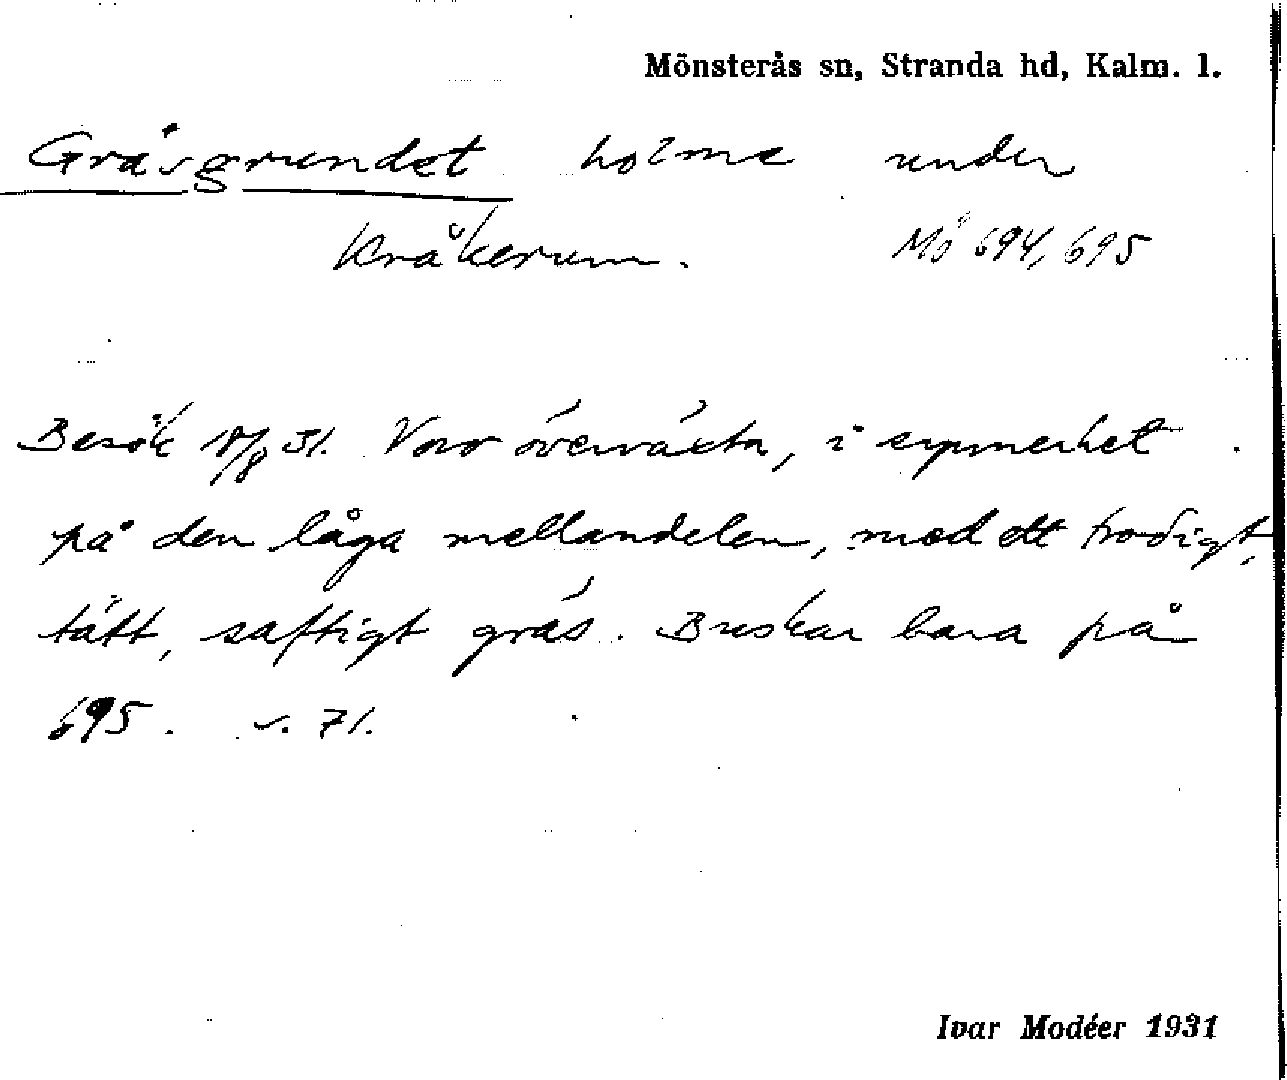 Mönsterås sn, Stranda hd, Kalm. l.
Gräsgrundet holme under
Kråkerum. Mö 694, 695
Besök 18/8 31. Voro övervuxna, i synnerhet
på den låga mellandelen, med ett frodigt,
tätt, saftigt gräs. Buskar bara på
695. s. 71.
Ivar Modéer 1931